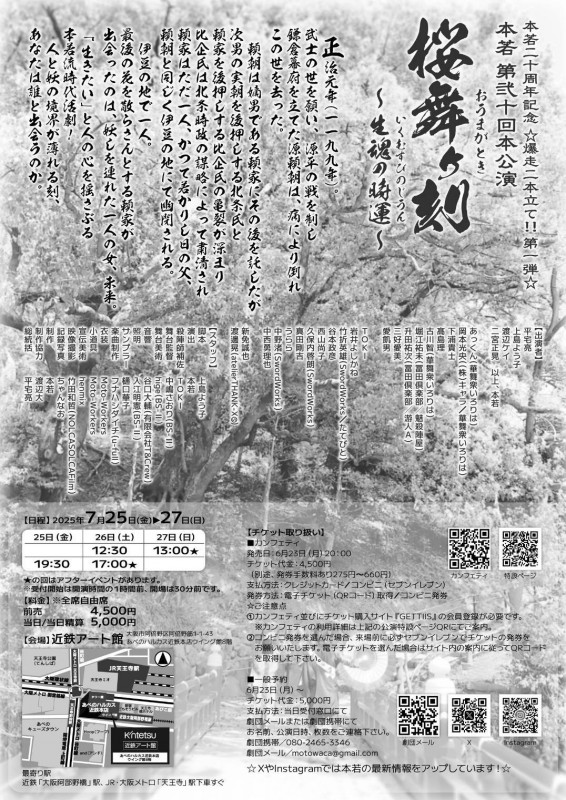 本若二十周年記念 ☆爆走二本立て!! 第一弾☆
本若 第弐十回本公演
おうまがとき
桜舞ヶ刻
いくむすびのじうん
～生魂の時運～
正治元年（一一九九年）。
武士の世を願い、源平の戦を制し
鎌倉幕府を立てた源頼朝は、病により倒れ
この世を去った。
頼朝は嫡男である頼家にその後を託したが
次男の実朝を後押しする北条氏と
頼家を後押しする比企氏の亀裂が深まり
比企氏は北条時政の謀略によって粛清され
頼家はただ一人、かつて若かりし日の父、
頼朝と同じく伊豆の地にて幽閉される。
伊豆の地で一人。
最後の花を散らさんとする頼家が
出会ったのは、妖しを連れた一人の女、未来。
「生きたい」と人の心を揺さぶる
本若流時代活劇！
人と妖の境界が薄れる刻、
あなたは誰と出会うのか。
【出演者】
平宅亮
上島よう子
渡辺大
二宮正晃 以上、本若
あっくん（華舞衆いろりは）
岡本光央（株）キャラ／華舞衆いろりは）
下浦貴士
高島理
古川智（華舞衆いろりは）
堀江祐未（富田倶楽部／魅殺陣屋）
升田祐次（富田倶楽部／游人A）
三好愛美
愛飢男
TOKI
岩井よしかね
竹折英雄（SwordWorks／たてびと）
谷本政彦
西山尚
久保内啓朗（SwordWorks）
真田剛吉
うらら
中野渚（SwordWorks）
中西勇理也
新免誠也
渡邊晃（atelier THANK-X）
【スタッフ】
脚本 上島よう子
演出 本若
殺陣師補佐 TOKI
舞台監督 中嶋さおり（BS-II）
舞台美術 hige（BS-II）
音響 谷口大輔（有限会社T&Crew）
照明 入江明恵（BS-II）
サンプラー 樋口華子
楽曲制作 フブハンダイチ（u-full）
衣装 Moto-Workers
小道具 Moto-Workers
宣伝美術 henmix
映像撮影 竹田和哲（DOLCASOLCAFilm）
記録写真 ちゃんなお
制作協力 本若
制作 渡辺大
総統括 平宅亮
【日程】2025年7月25日(金)▶27日(日)
25日 (金) 26日 (土) 27日 (日)
12:30 13:00★
19:30 17:00★
★の回はアフターイベントがあります。
※受付開始は開演時間の1時間前、開場は30分前です。
【料金】※全席自由席
前売り 4,500円
当日/当日精算 5,000円
【会場】近鉄アート館
大阪市阿倍野区阿倍野筋1-1-43
あべのハルカス近鉄本店ウイング館8階
天王寺公園
（てんしば）
JR天王寺駅
天王寺ミオ
あべのハルカス
近鉄本店
近鉄大阪阿部野橋駅
あべの
キューズタウン
Hoop（フープ）
Kintetsu
近鉄アート館
あべのハルカス近鉄本店
ウイング館8階
最寄り駅
近鉄「大阪阿部野橋」駅、JR・大阪メトロ「天王寺」駅下車すぐ
【チケット取り扱い】
■カンフェティ
発売日：6月23日(月)20:00
チケット代金：4,500円
（別途、発券手数料あり275円～660円）
支払方法：クレジットカード／コンビニ（セブンイレブン）
発券方法：電子チケット（QRコード）取得／コンビニ発券
☆ご注意点
①カンフェティ並びにチケット購入サイト『GETTIIS』の会員登録が必要です。
※カンフェティの利用詳細は上記の公演特設ページQRにてご案内。
②コンビニ発券を選んだ場合、来場前に必ずセブンイレブンでチケットの発券を
お願いいたします。電子チケットを選んだ場合はサイト内の案内に従ってQRコード
を取得して下さい。
カンフェティ
特設ページ
■一般予約
6月23日(月)～
チケット代金：5,000円
支払方法：当日受付窓口にて
劇団メールまたは劇団携帯にて
お名前、公演日時、枚数をご連絡下さい。
劇団携帯／080-2465-3346
劇団メール／motowaca@gmail.com
劇団メール
X
Instagram
☆XやInstagramでは本若の最新情報をアップしています！☆